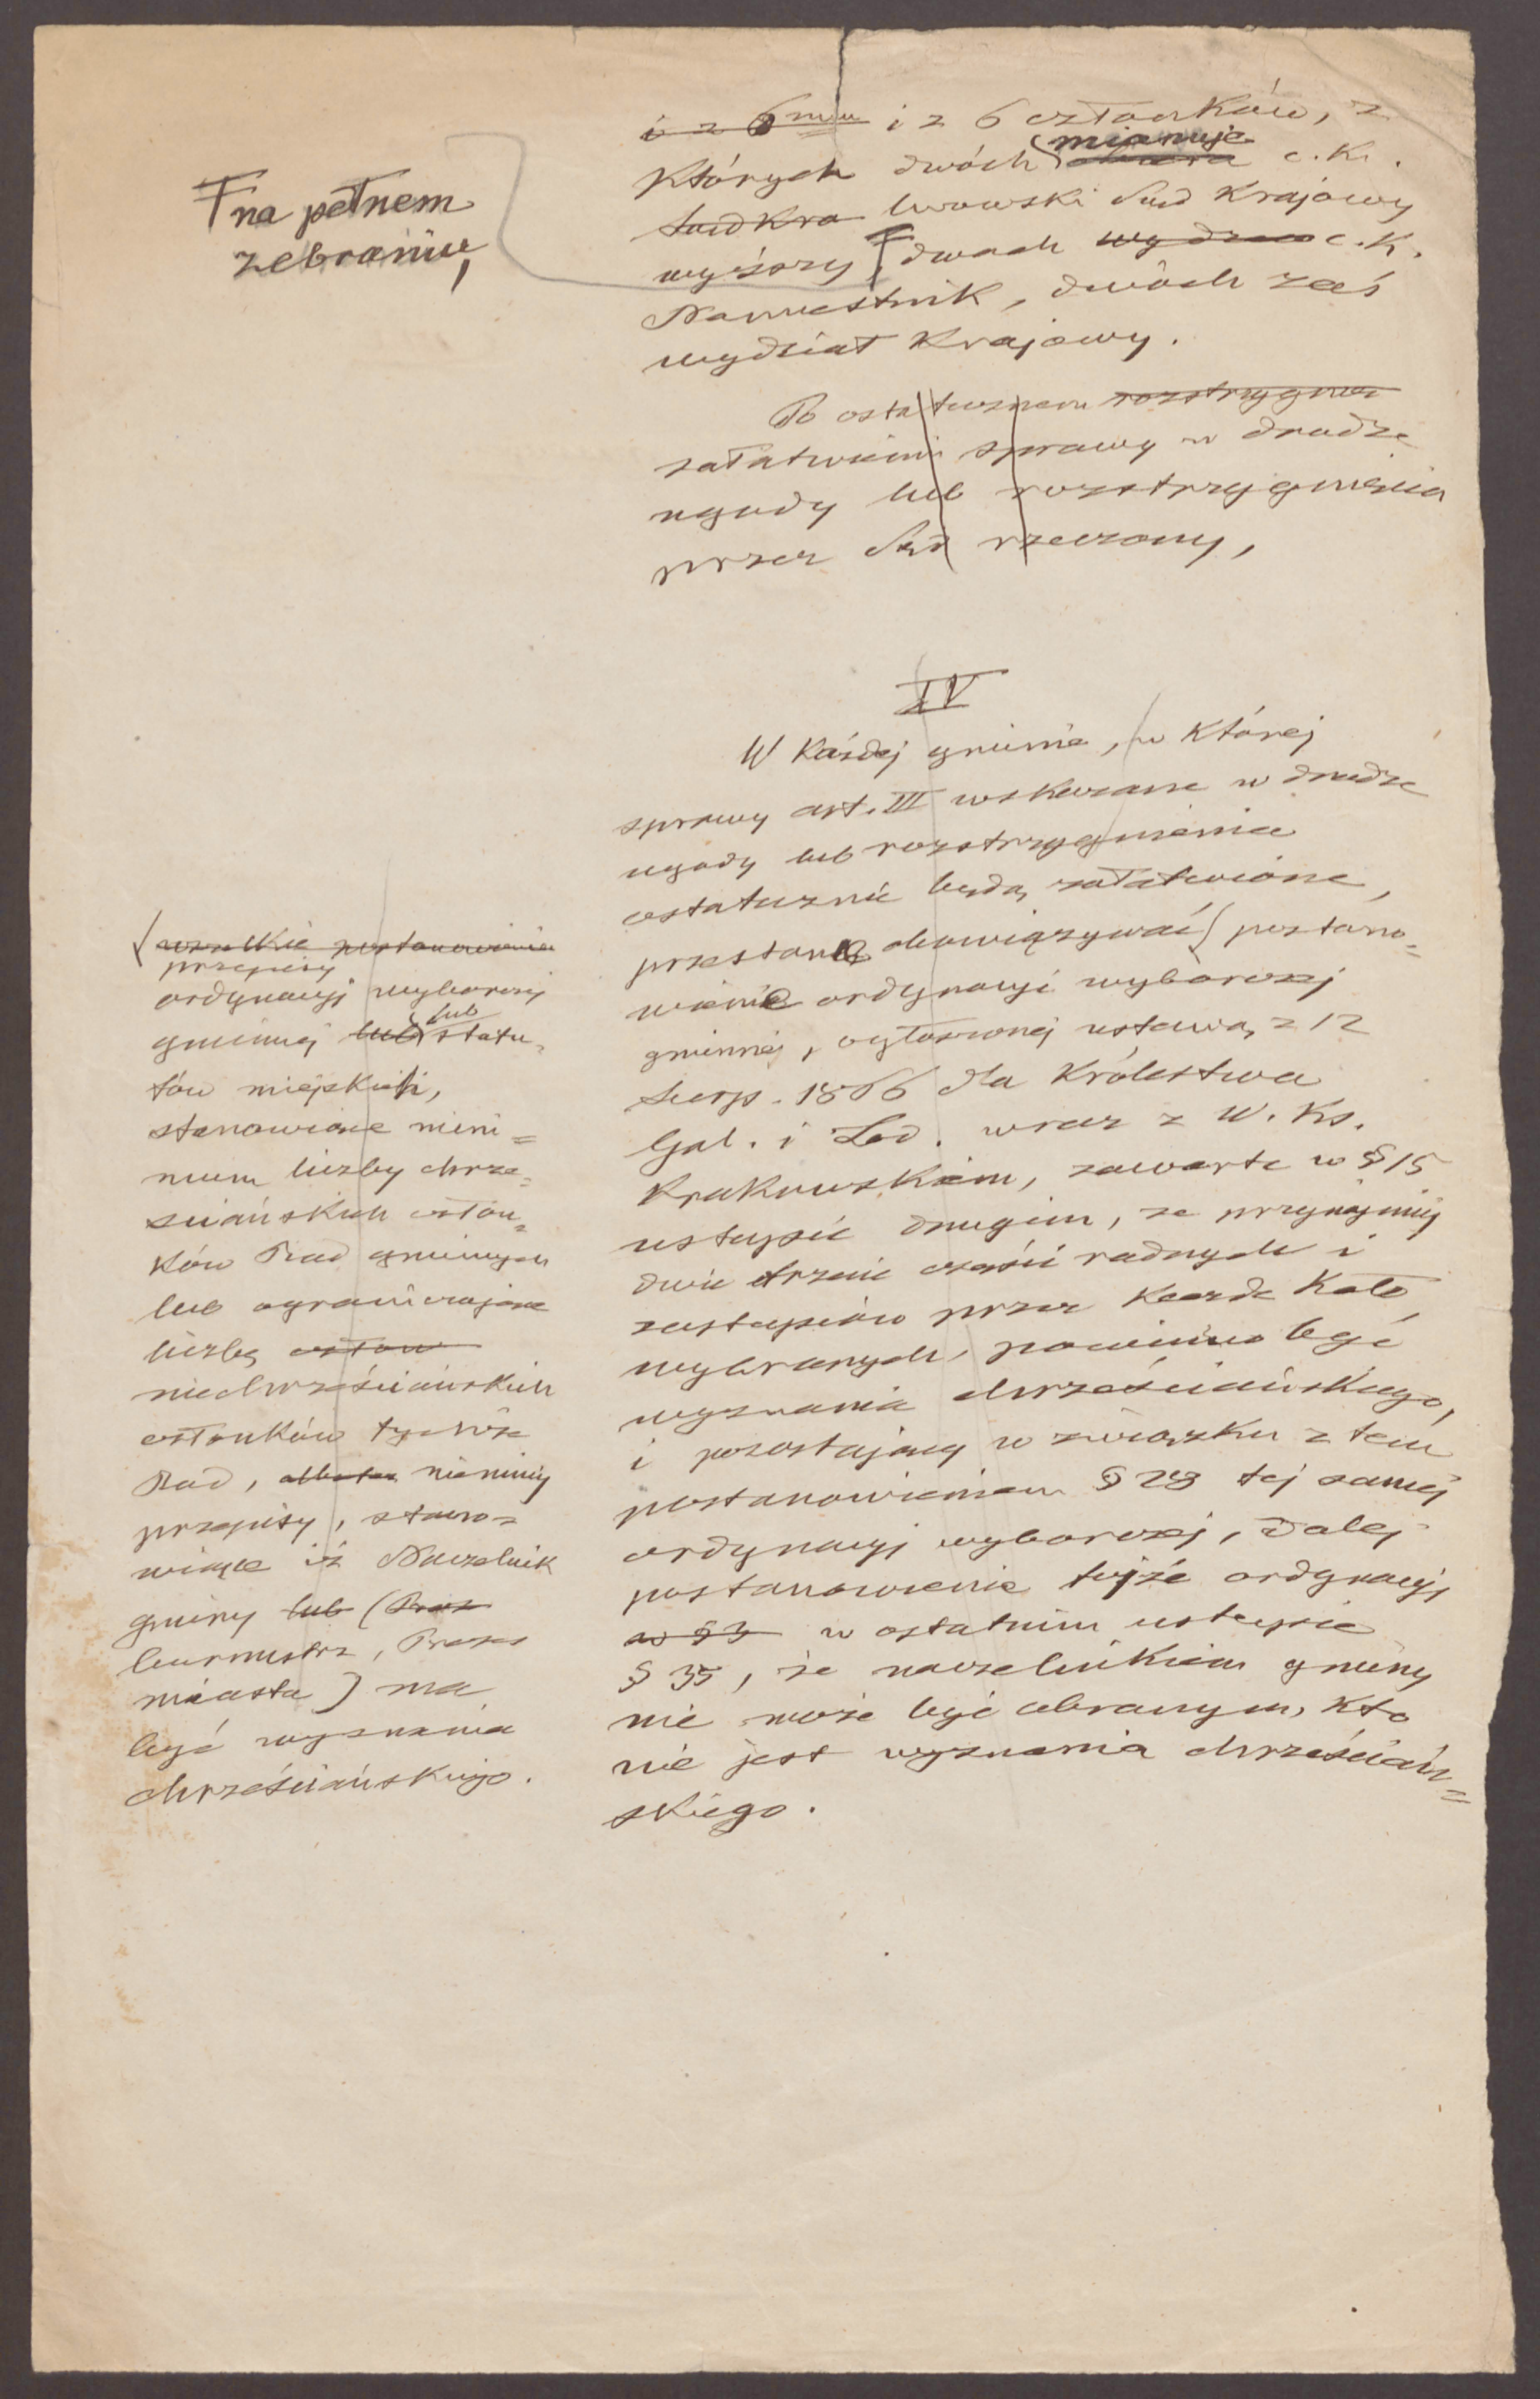 i z 6ciu i z 6 członków, z
których dwóch mianuje c. k.
Sąd Kra lwowski Sąd Krajowy
wyższy, dwóch c. K.
Namiestnik, dwóch zaś
wydział Krajowy.
Fna pełnem
zebraniu,
Po ostatecznem rozstrzygnię
załatwieniu sprawy w drodze
ugody lub rozstrzygnięcia
przez Sąd rzeczony,
IV
W każdej gminie, w której
sprawy art. III wskazane w drodze
ugody lub rozstrzygnienia
ostatecznie będą załatwione,
przestaną obowiązywać ( postano=
wienie ordynacyi wyborczej
gminnej, ogłoszonej ustawą z 12
Sierp. 1866 dla Królestwa
Gal. i Lod. wraz z W. Ks.
Krakowskiem, zawarte w § 15
ustępie drugim, że przynajmniej
dwie trzecie części radnych i
zastępców przez każde Koło
wybranych, powinno być
wyznania chrześciańskiego,
i pozostający w związku z tem
postanowieniem § 28 tej samej
ordynacyi wyborczej, dalej
postanowienie tejże ordynacyi
w § 3 w ostatnim ustępie
§ 35, że naczelnikiem gminy
nie może być obranym, kto
nie jest wyznania chrześciań=
skiego.
( wszelkie postanowienia
przepisy
ordynacyi wyborczej
gminnej lub lub statu=
tów miejskich,
stanowiące mini=
mum liczby chrze=
sciańskich człon=
ków Rad gminnych
lub ograniczające
liczbę człon
niechrześciańskich
członków tychże
Rad, niemniej
przepisy, stano=
wiące iż Naczelnik
gminy lub (Prez
burmistrz, Prezes
miasta) ma
być wyznania
chrześciańskiego.